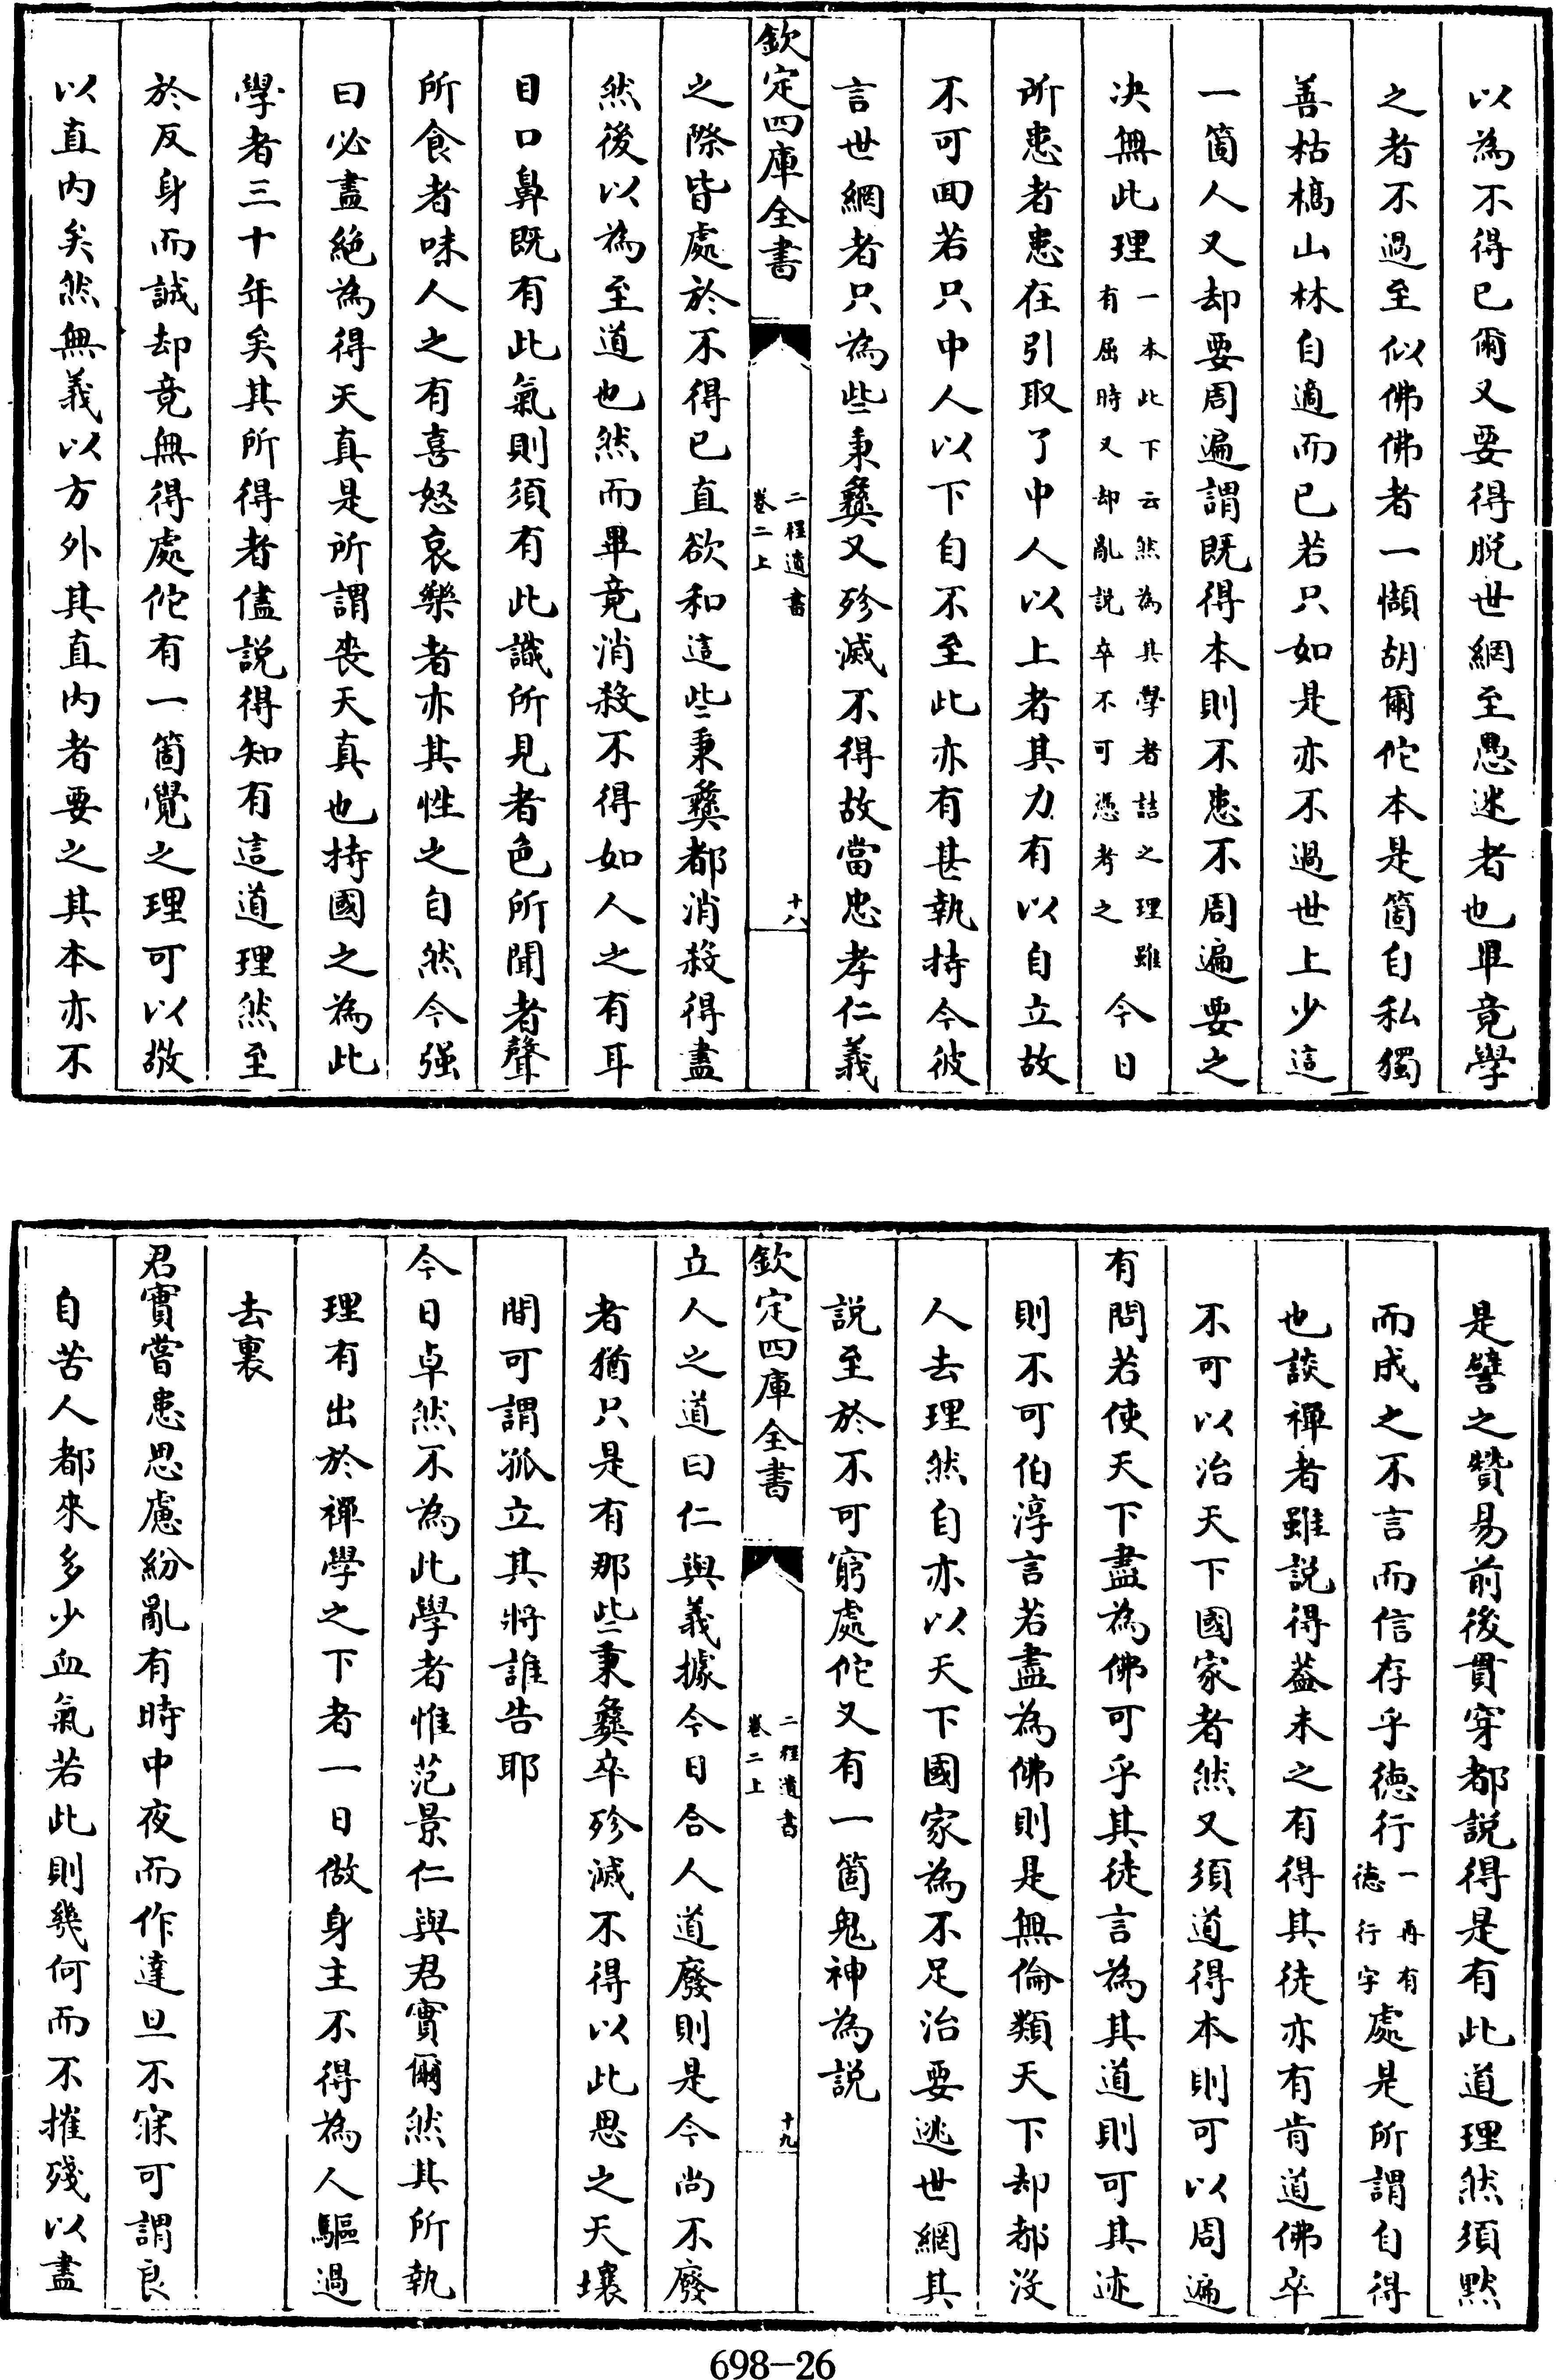 以為不得已爾又要得脱世網至愚迷者也畢竟學
之者不過至似佛佛者一懶胡爾佗本是箇自私獨
善枯槁山林自適而已若只如是亦不過世上少這
一箇人又却要周遍謂既得本則不患不周遍要之
决無此理一本此下云然為其學者詰之理雖有屈時又却亂説卒不可憑考之今日
所患者患在引取了中人以上者其力有以自立故
不可回若只中人以下自不至此亦有甚執持今彼
言世網者只為些秉彞又殄滅不得故當忠孝仁義
欽定四庫全書
二程遺書
卷二上
十八
之際皆處於不得已直欲和這些秉彞都消殺得盡
然後以為至道也然而畢竟消殺不得如人之有耳
目口鼻既有此氣則須有此識所見者色所聞者聲
所食者味人之有喜怒哀樂者亦其性之自然今强
曰必盡絶為得天真是所謂喪天真也持國之為此
學者三十年矣其所得者儘説得知有這道理然至
於反身而誠却竟無得處佗有一箇覺之理可以敬
以直内矣然無義以方外其直内者要之其本亦不
是譬之贊易前後貫穿都説得是有此道理然須黙
而成之不言而信存乎徳行一再有徳行字處是所謂自得
也談禪者雖説得葢未之有得其徒亦有肯道佛卒
不可以治天下國家者然又須道得本則可以周遍
有問若使天下盡為佛可乎其徒言為其道則可其迹
則不可伯淳言若盡為佛則是無倫類天下却都没
人去理然自亦以天下國家為不足治要逃世網其
説至於不可窮處佗又有一箇鬼神為説
欽定四庫全書
二程遺書
卷二上
十九
立人之道曰仁與義據今日合人道廢則是今尚不廢
者猶只是有那些秉彞卒殄滅不得以此思之天壤
間可謂孤立其將誰告耶
今日卓然不為此學者惟范景仁與君實爾然其所執
理有出於禪學之下者一日做身主不得為人驅過
去裏
君實嘗患思慮紛亂有時中夜而作達旦不寐可謂良
自苦人都來多少血氣若此則幾何而不摧殘以盡
698-26